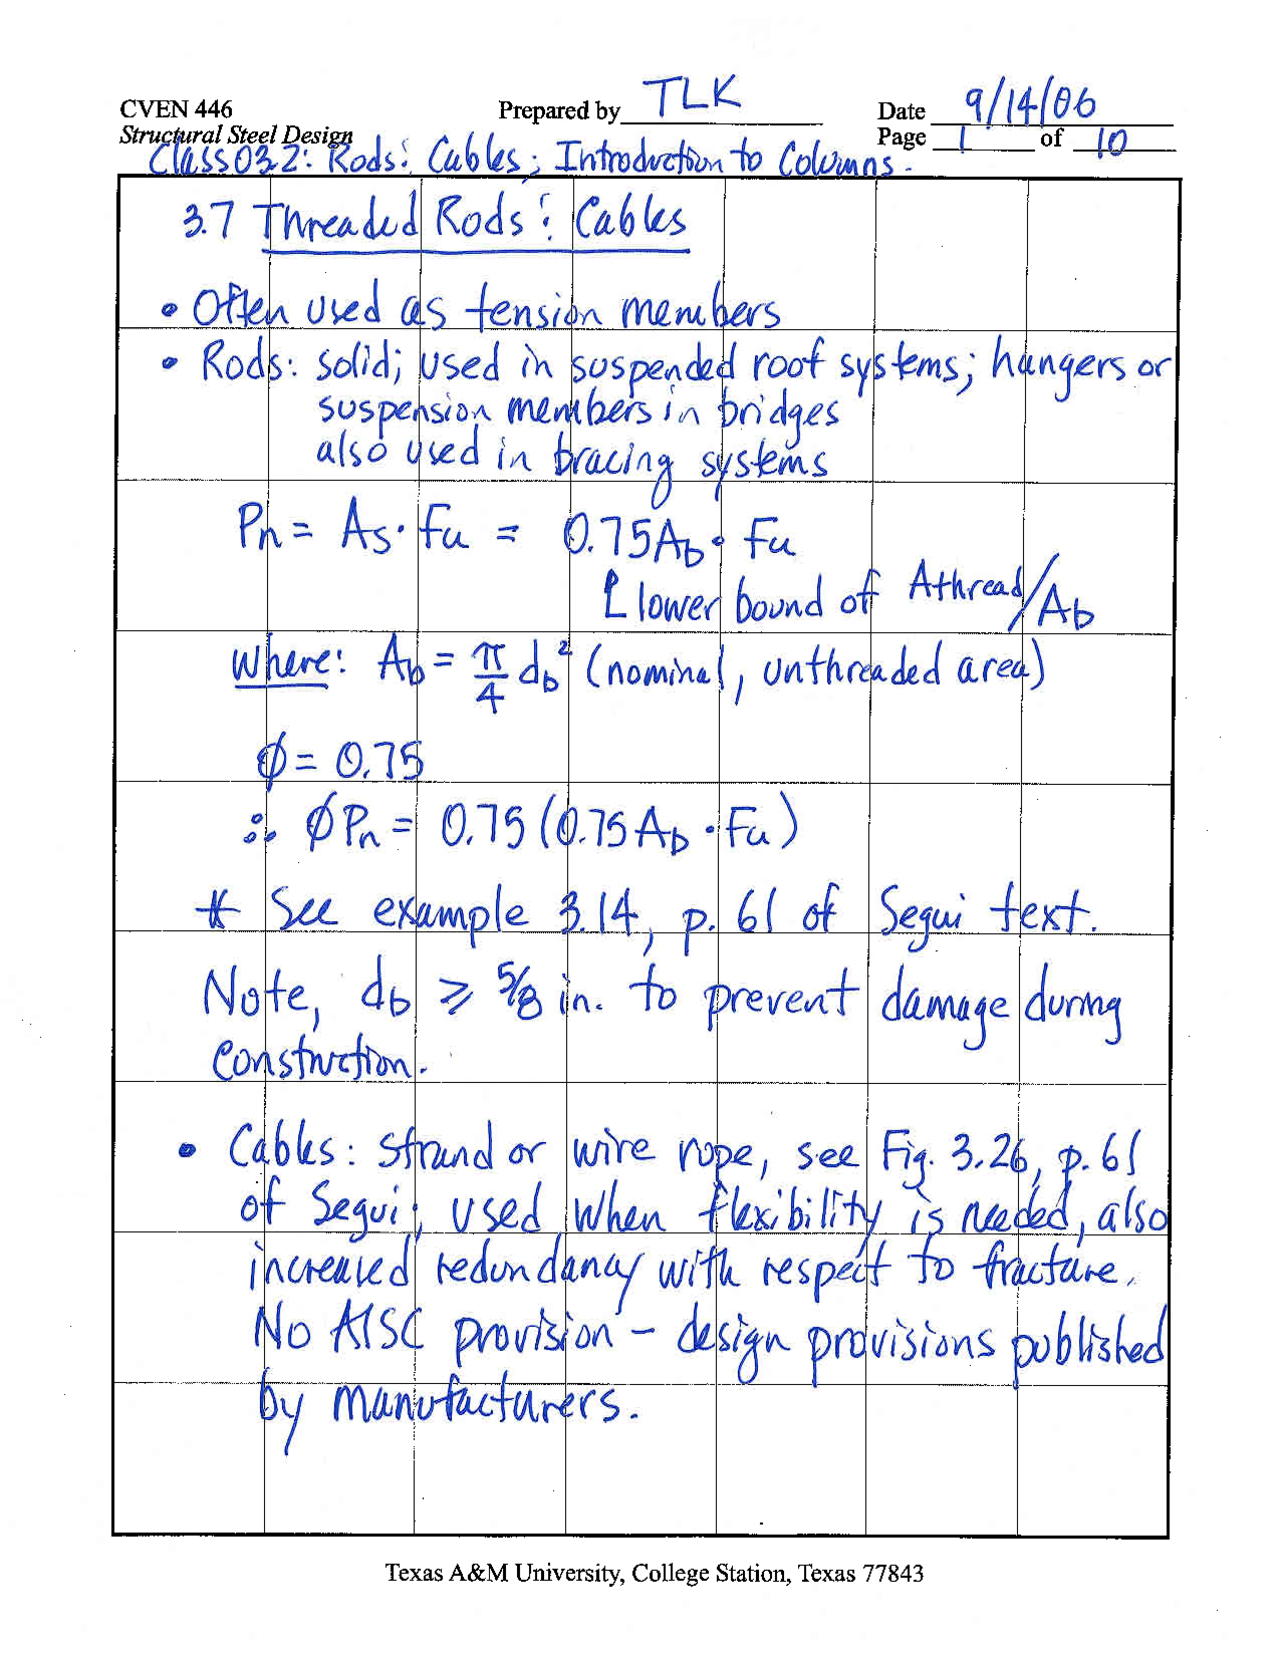 CVEN 446 Prepared by TLK Date 9/14/06
Structural Steel Design Page 1 of 10
Class 03.2: Rods & Cables; Introduction to Columns.
3.7 Threaded Rods & Cables
• Often used as tension members
• Rods: solid; used in suspended roof systems; hangers or
suspension members in bridges
also used in bracing systems
Pn = As · Fu = 0.75Ab · Fu
lower bound of Athread/Ab
where: Ab = π/4 db² (nominal, unthreaded area)
φ = 0.75
∴ φPn = 0.75 (0.75 Ab · Fu)
* See example 3.14, p. 61 of Segui text.
Note, db ≥ 5/8 in. to prevent damage during
construction.
• Cables: strand or wire rope, see Fig. 3.26, p. 61
of Segui; used when flexibility is needed, also
increased redundancy with respect to fracture.
No AISC provision – design provisions published
by manufacturers.
Texas A&M University, College Station, Texas 77843